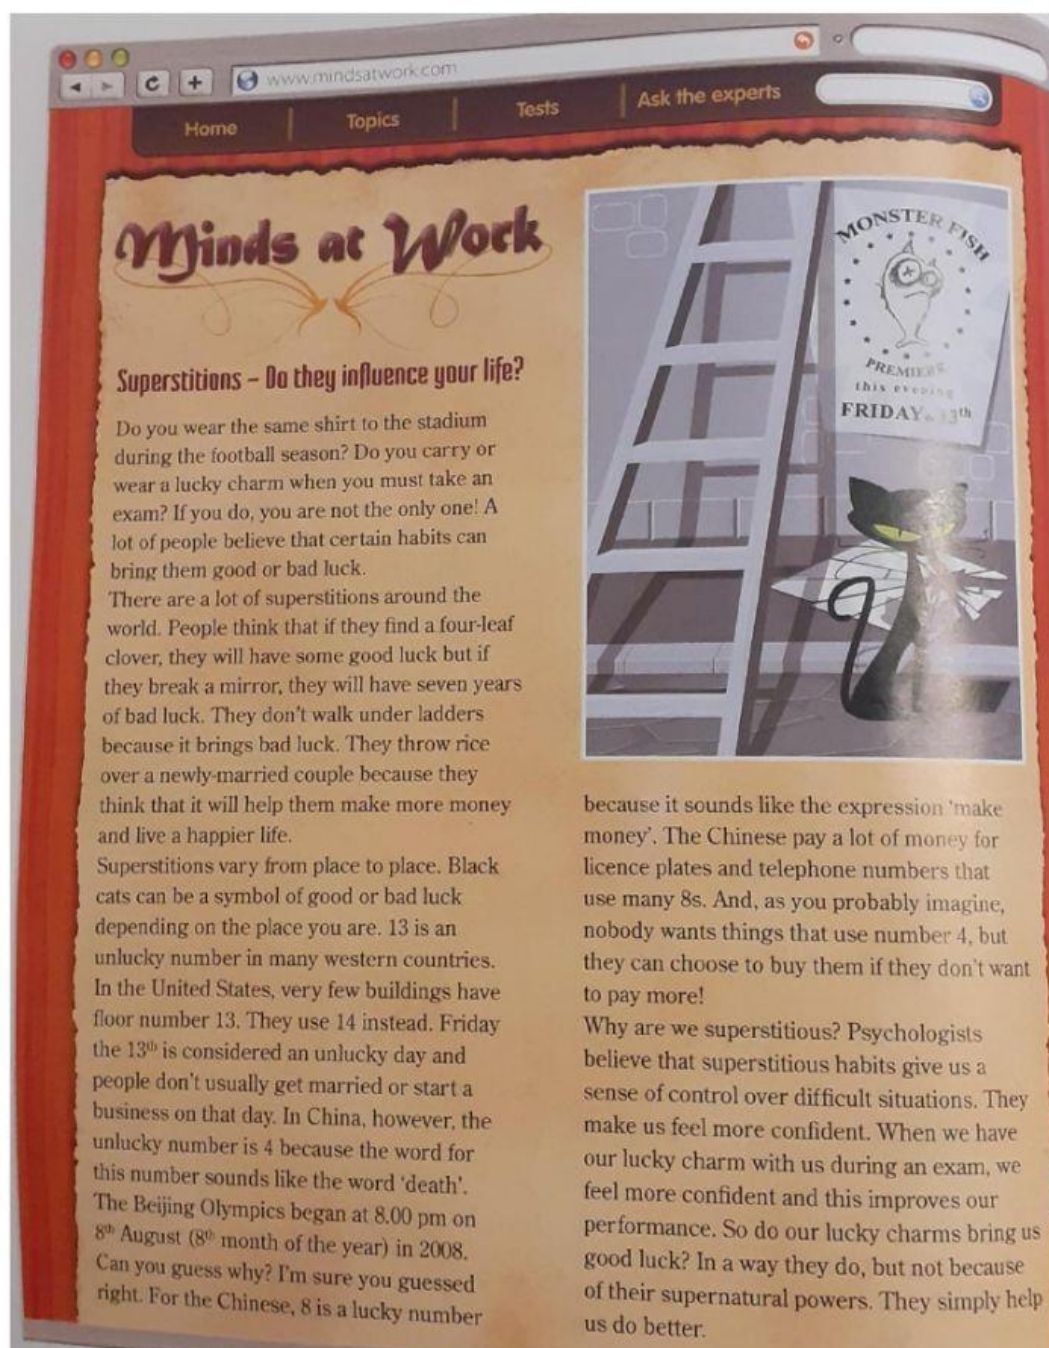 www.mindsatwork.com
Home
Topics
Tests
Ask the experts
Minds at Work
Superstitions – Do they influence your life?
Do you wear the same shirt to the stadium
during the football season? Do you carry or
wear a lucky charm when you must take an
exam? If you do, you are not the only one! A
lot of people believe that certain habits can
bring them good or bad luck.
There are a lot of superstitions around the
world. People think that if they find a four-leaf
clover, they will have some good luck but if
they break a mirror, they will have seven years
of bad luck. They don't walk under ladders
because it brings bad luck. They throw rice
over a newly-married couple because they
think that it will help them make more money
and live a happier life.
Superstitions vary from place to place. Black
cats can be a symbol of good or bad luck
depending on the place you are. 13 is an
unlucky number in many western countries.
In the United States, very few buildings have
floor number 13. They use 14 instead. Friday
the 13th is considered an unlucky day and
people don't usually get married or start a
business on that day. In China, however, the
unlucky number is 4 because the word for
this number sounds like the word 'death'.
The Beijing Olympics began at 8.00 pm on
8th August (8th month of the year) in 2008.
Can you guess why? I'm sure you guessed
right. For the Chinese, 8 is a lucky number
MONSTER FISH
PREMIERE
this evening
FRIDAY 13th
because it sounds like the expression 'make
money'. The Chinese pay a lot of money for
licence plates and telephone numbers that
use many 8s. And, as you probably imagine,
nobody wants things that use number 4, but
they can choose to buy them if they don't want
to pay more!
Why are we superstitious? Psychologists
believe that superstitious habits give us a
sense of control over difficult situations. They
make us feel more confident. When we have
our lucky charm with us during an exam, we
feel more confident and this improves our
performance. So do our lucky charms bring us
good luck? In a way they do, but not because
of their supernatural powers. They simply help
us do better.